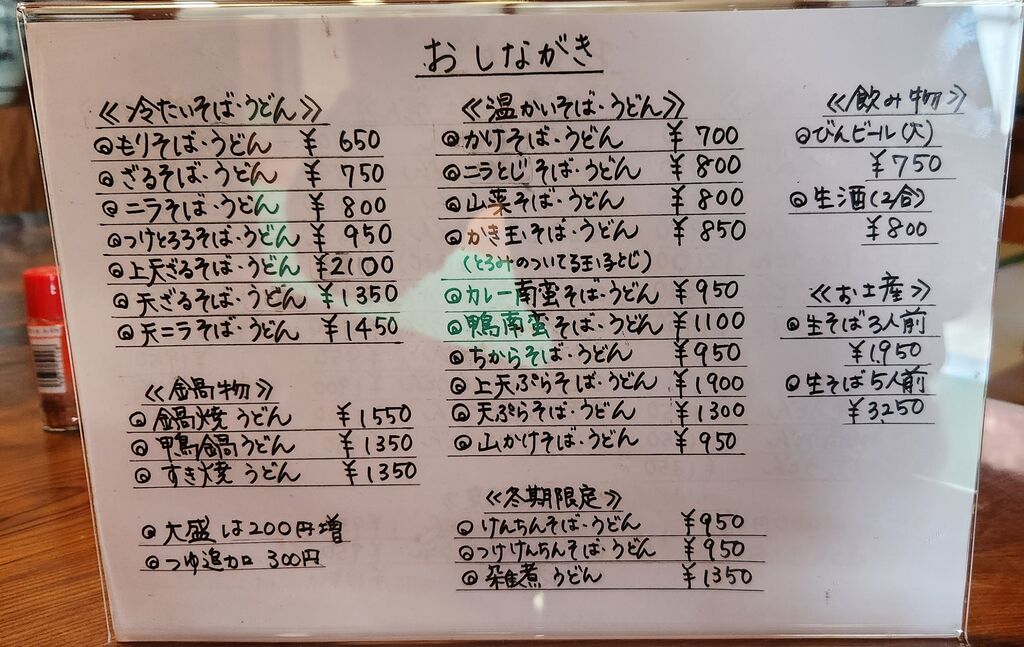 おしながき
≪冷たいそば・うどん≫
◎もりそば・うどん ¥650
◎ざるそば・うどん ¥750
◎ニラそば・うどん ¥800
◎つけとろろそば・うどん ¥950
◎上天ざるそば・うどん ¥2100
◎天ざるそば・うどん ¥1350
◎天ニラそば・うどん ¥1450
≪鍋物≫
◎鍋焼うどん ¥1550
◎鴨鍋うどん ¥1350
◎すき焼うどん ¥1350
◎大盛は200円増
◎つゆ追加 300円
≪温かいそば・うどん≫
◎かけそば・うどん ¥700
◎ニラとじそば・うどん ¥800
◎山菜そば・うどん ¥800
◎かき玉そば・うどん ¥850
(とろみのついてる玉子とじ)
◎カレー南蛮そば・うどん ¥950
◎鴨南蛮そば・うどん ¥1100
◎ちからそば・うどん ¥950
◎上天ぷらそば・うどん ¥1900
◎天ぷらそば・うどん ¥1300
◎山かけそば・うどん ¥950
≪冬期限定≫
◎けんちんそば・うどん ¥950
◎つけけんちんそば・うどん ¥950
◎雑煮うどん ¥1350
≪飲み物≫
◎びんビール(大)
¥750
◎生酒(2合)
¥800
≪お土産≫
◎生そば3人前
¥1,950
◎生そば5人前
¥3,250